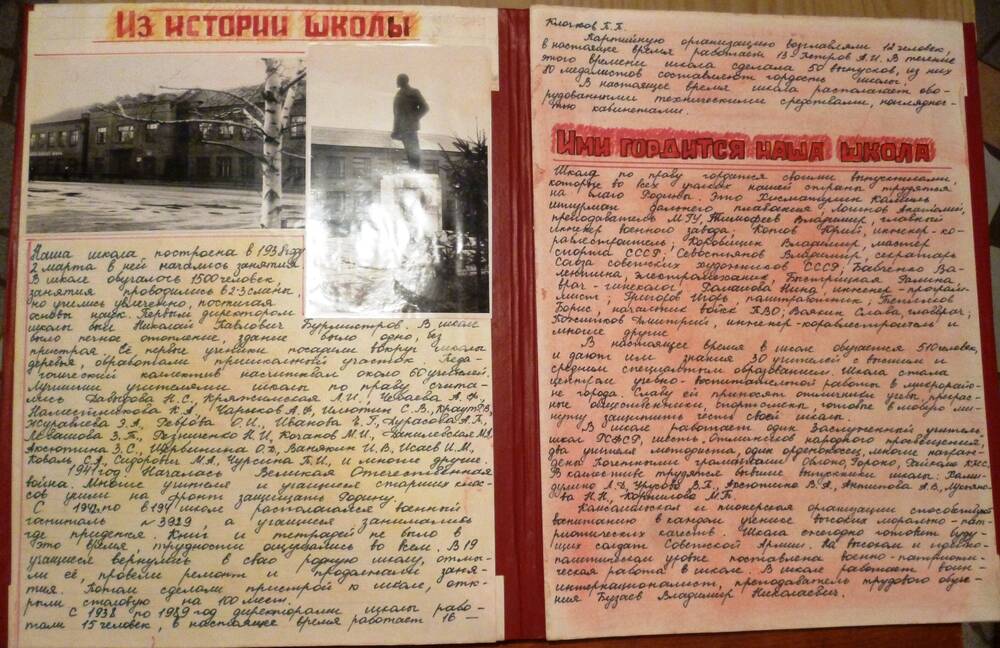 Из истории школы
Наша школа построена в 1938 году
2 марта в ней начались занятия
В школе обучалось 1500 человек,
занятия проводились в 2-3 смены
но учились увлеченно, постигая
основы наук. Первым директором
школы был Николай Павлович Бурмистров. В школе
было печное отопление, здание было одно, без
пристроя. Её первые ученики посадили вокруг школы
деревья, обработали пришкольный участок. Педа-
гогический коллектив насчитывал около 60 учителей.
Лучшими учителями школы по праву счита-
лись Давыдова Н.С., Кряжимская Л.И., Чебаева А.Ф,
Наместникова К.А, Чарыков А.Ф, Илютин С.В., Краут
Журавлева З.А, Реброва О.И., Иванова Е.Г, Дурасова А.П.,
Левашова З.П., Резниченко Н.И, Коганов М.И., Данилевская М.А
Аксютина З.С., Щербинина О.Д, Ванякин И.В, Исаев И.М.,
Коваль С.Я, Сидорович М.А, Чурсина Т.И, и многие другие.
1941 год. Началась Великая Отечественная
война. Многие учителя и учащиеся старших клас-
сов ушли на фронт защищать Родину.
С 1942 по 194 школе располагался военный
госпиталь №3929, а учащиеся занимались
где придется. Книг и тетрадей не было в
это время, трудности ощущались во всем. В 19
учащиеся вернулись в свою родную школу, отмы-
ли её, провели ремонт и продолжали заня-
тия. Потом сделали пристрой к школе, отк-
рыли столовую на 100 мест.
С 1938 по 1989 год директорами школы рабо-
тали 15 человек, в настоящее время работает 16 -
Клочков П.П.
Партийную организацию возглавляли 12 человек,
в настоящее время работает 13 Петров А.И. В течение
этого времени школа сделала 50 выпусков, из них
80 медалистов составляют гордость школы.
В настоящее время школа располагает обо-
рудованными техническими средствами, наглядно-
стью кабинетами.
Ими гордится наша школа
Школа по праву гордится своими выпускниками,
которые во всех уголках нашей страны трудятся
на благо Родины. Это Хисматулин Камиль
штурман дальнего плавания, Логинов Анатолий,
преподаватель МГУ, Тимофеев Владимир, главный
инженер военного завода; Котов Юрий, инженер-ко-
раблестроитель; Коровшин Владимир, мастер
спорта СССР; Севостьянов Владимир, секретарь
Союза советских художников СССР; Бабченко Ва-
лентина, электромеханик;
врач-гинеколог; Долматова Нина, инженер-програм-
мист; Григоров Игорь, политработник; Тепляков
Борис, начальник войск ПВО; Ваякин Слава, главврач;
Дмитрий, инженер-кораблестроитель и
многие другие
В настоящее время в школе обучается 510 человек,
и дают им знания 30 учителей с высшим и
средним специальным образованием. Школа стала
центром учебно-воспитательной работы в микрорайо-
не города. Славу ей приносят отличники учебы, прекрас-
ные общественники, спортсмены, готовые в любую ми-
нуту защитить честь своей школы.
В школе работает один Заслуженный учитель
школ РСФСР, шесть, Отличников народного просвещения,
два учителя методиста, один орденоносец, многие награж-
дены Почетными грамотами Облоно, Гороно, Райкома КПСС.
В коллективе трудятся бывшие выпускники школы: Хами-
дулина Л.Д, Урусова В.П., Аксютина В.А, Антипова А.В, Мукина-
ва Н.Н, Кормилова М.Б.
Комсомольская и пионерская организации способствуют
воспитанию в каждом ученике высоких морально-пат-
риотических качеств. Школа ежегодно готовит буду-
щих солдат Советской Армии. На высоком и идейно-
политическом уровне поставлена военно-патриоти-
ческая работа в школе. В школе работает воин-
интернационалист, преподаватель трудового обуче-
ния Бузаев Владимир Николаевич.